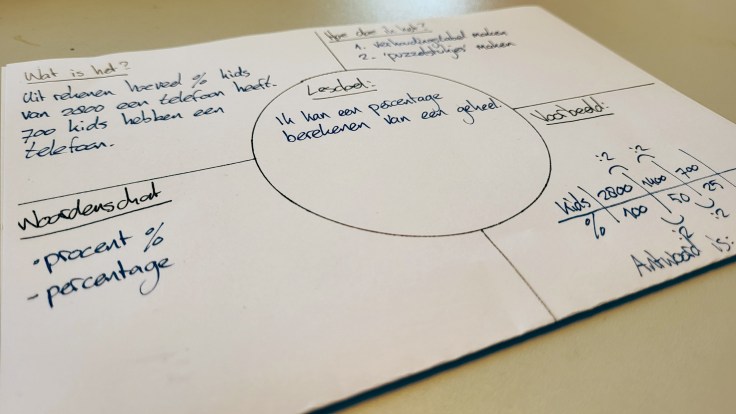 Wat is het?
Uit rekenen hoeveel % kids
van 2800 een telefoon heeft.
700 kids hebben een
telefoon.
Hoe doe ik het?
1. verhoudingstabel maken
2. 'puzzelstukjes' maken
Lesdoel:
Ik kan een percentage
berekenen van een geheel.
Voorbeeld:
:2 :2
kids 2800 1400 700
% 100 50 25
:2 :2
Antwoord is:
Woordenschat
• procent %
- percentage